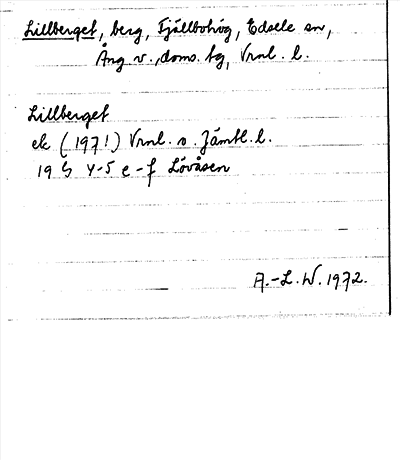 Lillberget, berg, Fjällbohög, Edsele sn,
Ång v., doms. tg, Vrnl. l.
Lillberget
ek (1971) Vrnl. o. Jämtl. l.
19 G 4-5 e-f Lövåsen
A.-L. W. 1972.